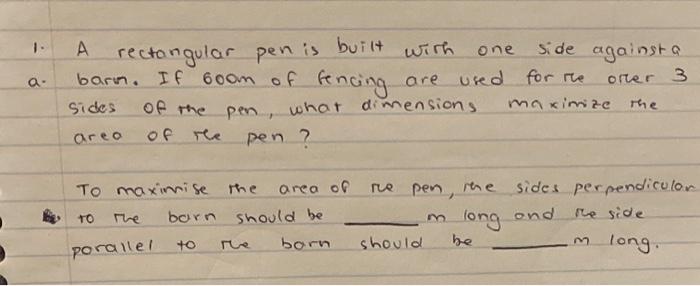 1. A rectangular pen is built with one side against a
a. barn. If 600m of fencing are used for the other 3
sides of the pen, what dimensions maximize the
area of the pen?
To maximise the area of the pen, the sides perpendicular
to the barn should be ______ m long and the side
parallel to the barn should be ______ m long.